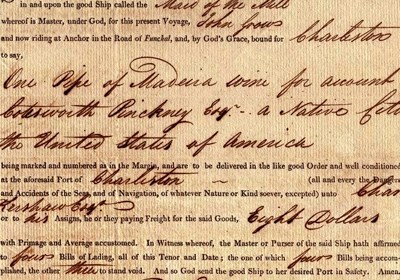 in and upon the good Ship called the Maid of the Mill
whereof is Master, under God, for this present Voyage, John
and now riding at Anchor in the Road of Funchal, and, by God's Grace, bound for Charleston
to say,
One Pipe of Madeira wine for account
Cotesworth Pinckney Esqr. a Native Citi
the United States of America
being marked and numbered as in the Margin, and are to be delivered in the like good Order and well conditioned
at the aforesaid Port of Charleston (all and every the Dangers
and Accidents of the Seas, and of Navigation, of whatever Nature or Kind soever, excepted) unto Chas
Kershaw Esqr.
or to his Assigns, he or they paying Freight for the said Goods, Eight Dollars
with Primage and Average accustomed. In Witness whereof, the Master or Purser of the said Ship hath affirmed
to four Bills of Lading, all of this Tenor and Date; the one of which four Bills being accom-
plished, the other three to stand void. And so God send the good Ship to her desired Port in Safety. Amen.
Dated in